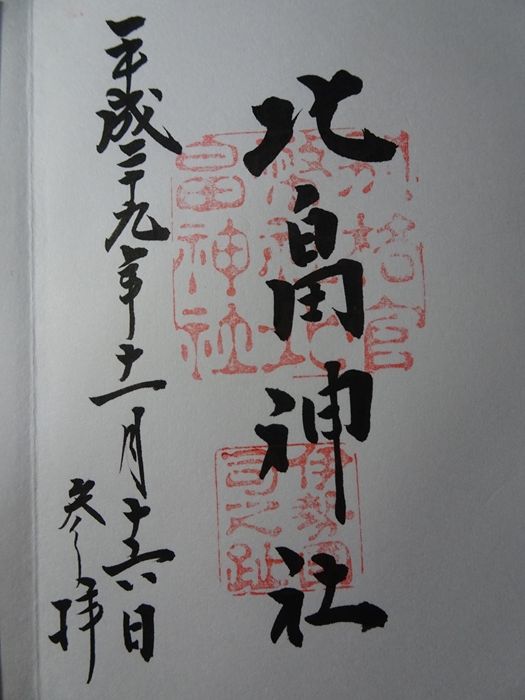 北畠神社
別格官
幣社北
畠神社
伊勢國
司之趾
平成二十九年十一月十六日
参拝